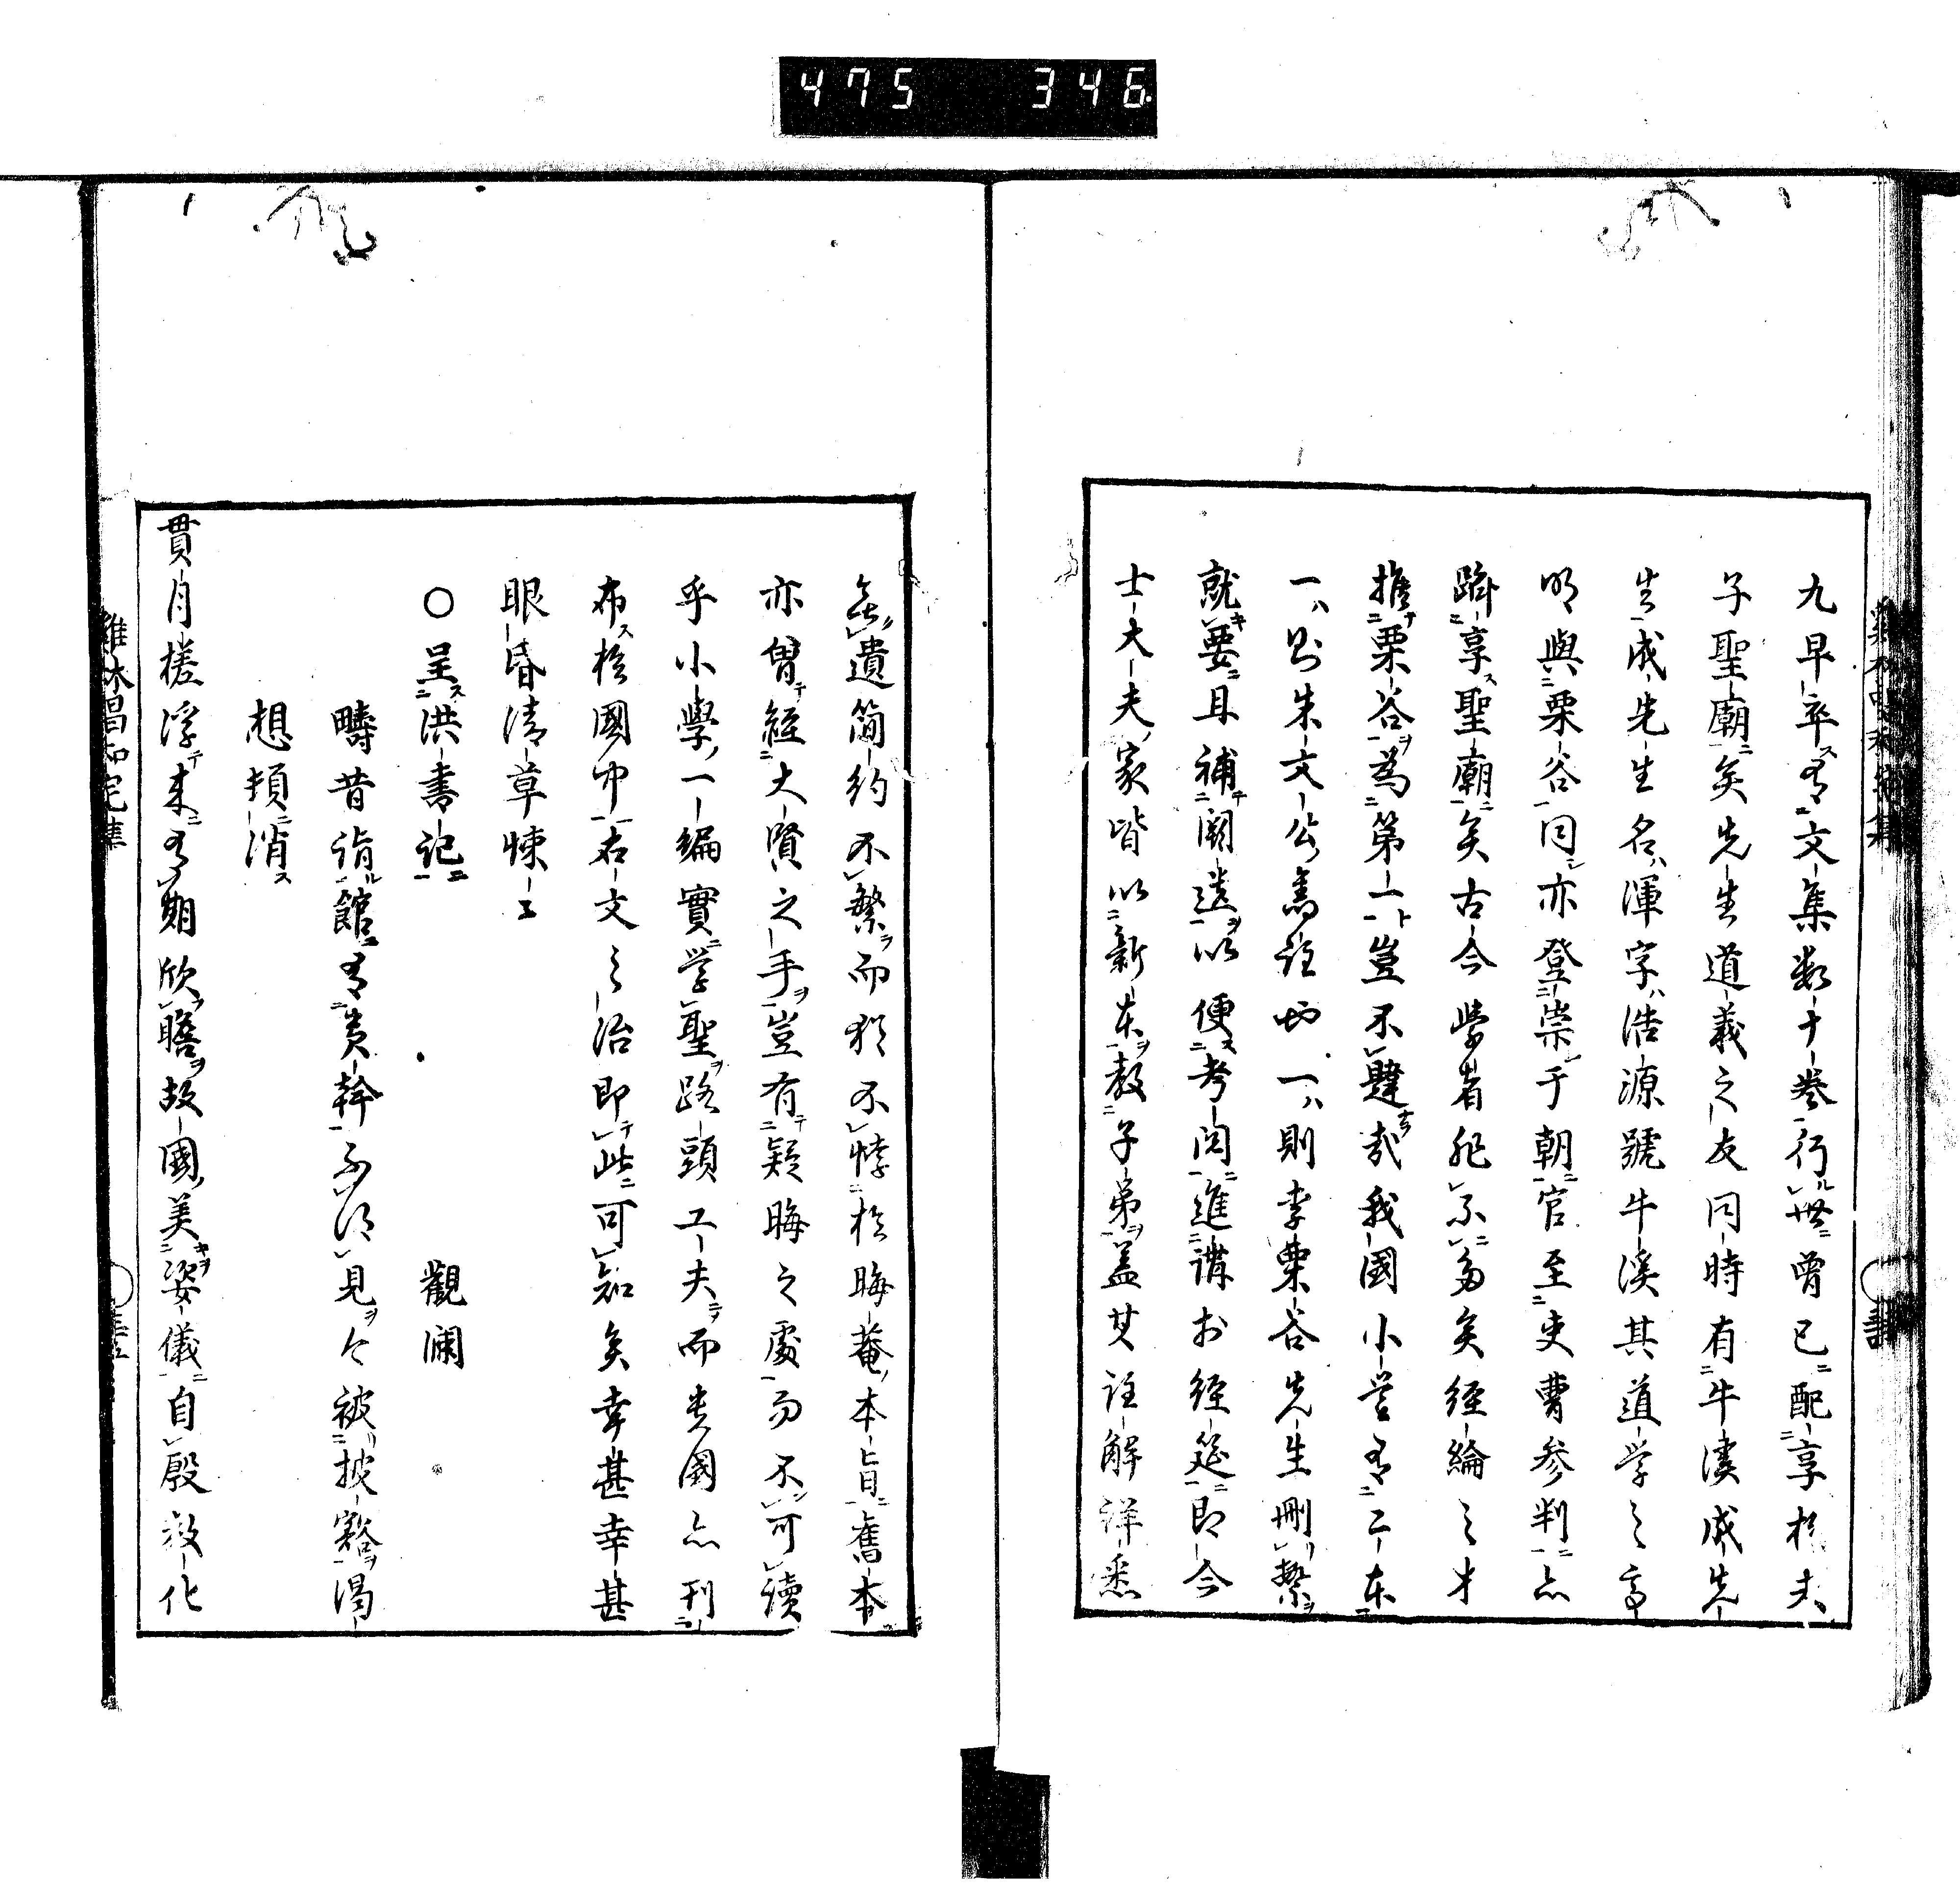 475 346
九早卒有文集数十巻行世曽已配享於夫
子聖廟矣先生道義之友同時有牛溪成先
生成先生名渾字浩源號牛溪其道学之高
明與栗谷同亦登崇于朝官至吏曹参判亦
躋享聖廟矣古今学者非不多矣経綸之才
推栗谷為第一豈不韙哉我國小学有二本
一則朱文公旧註也一則李栗谷先生刪繁
就要且補闕遺以便考閲進講於経筵即今
士大夫家皆以新本教子弟蓋其註解詳悉
無遺簡約不繁而移不悖於晦菴本旨舊本
亦曽経大賢之手豈有疑晦之處而不可續
乎小學一編實学聖路頭工夫而貴國亦刊
布於國中右文之治即此可知矣幸甚幸甚
眼昏清草悚々
○呈洪書記 觀瀾
疇昔詣館有貴幹不得見今被披豁渇
想頓消
貫月槎浮来有期欣瞻故國美姿儀自殷敎化